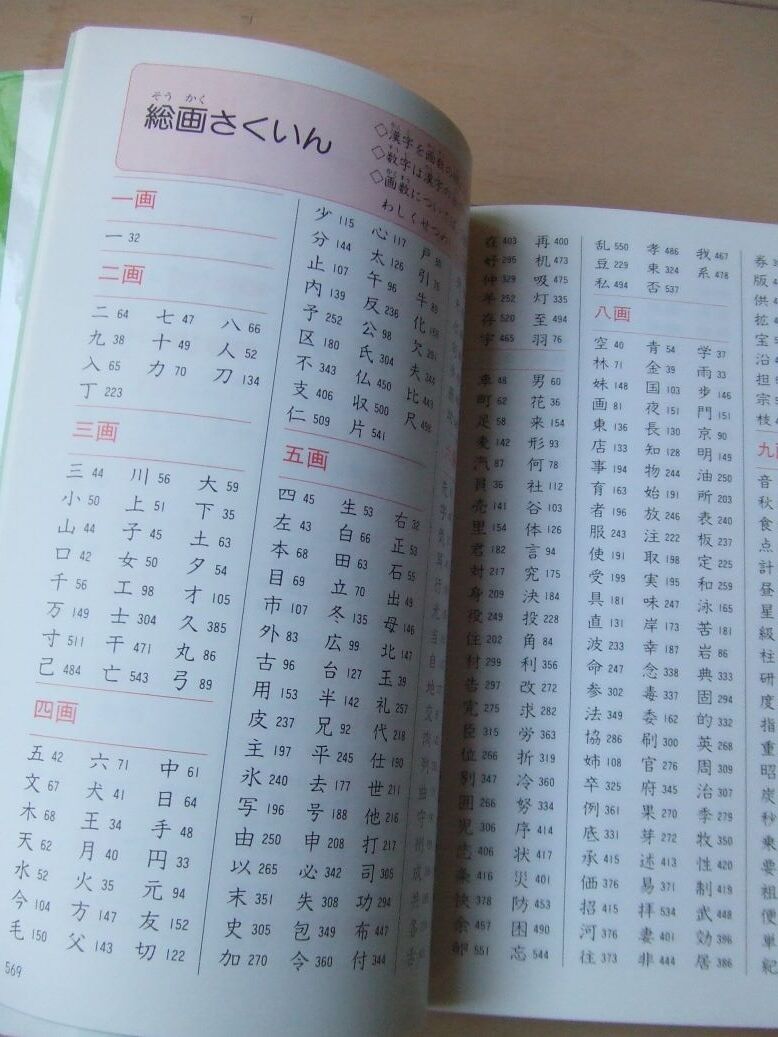 そう かく
総画さくいん
◇漢字を画数の
◇数字は漢字の
◇画数について
わしくせつ
一画
一 32
二画
二 64 七 47 八 66
九 38 十 49 人 52
入 65 力 70 刀 134
丁 223
三画
三 44 川 56 大 59
小 50 上 51 下 35
山 44 子 45 土 63
口 42 女 50 夕 54
千 56 工 98 才 105
万 149 士 304 久 385
寸 511 干 471 丸 86
己 484 亡 543 弓 89
四画
五 42 六 71 中 61
文 67 犬 41 日 64
木 68 王 34 手 48
天 62 月 40 円 33
水 52 火 35 元 94
今 104 方 147 友 152
毛 150 父 143 切 122
少 115 心 117 戸
分 144 太 126 引
止 107 午 96 牛
内 139 反 236 化
予 252 公 98 欠
区 180 氏 304 夫 344
不 343 仏 450 比 443
支 406 収 500 尺 498
仁 509 片 541
五画
四 45 生 53 右 32
左 43 白 66 正 53
本 68 田 63 石 55
目 69 立 70 出 49
市 107 冬 135 母 146
外 83 広 99 北 147
古 96 台 127 玉 39
用 153 半 142 礼 257
皮 237 兄 92 代 218
主 197 平 245 仕 190
氷 240 去 177 世 211
写 196 号 188 他 216
由 250 申 208 打 217
以 265 必 342 司 305
末 351 失 308 功 294
史 305 包 349 布 447
加 270 令 360 付 344
569
在 403 再 400
好 295 机 473
仲 329 吸 475
羊 252 灯 335
存 520 至 494
宇 465 羽 76
車 48 男 60
町 62 花 36
足 58 来 154
麦 142 形 93
汽 87 何 78
貝 36 社 112
売 141 谷 103
里 154 体 126
君 182 言 94
対 217 究 175
身 209 決 184
役 249 投 228
住 202 角 84
材 299 利 356
告 297 改 272
完 275 求 282
臣 315 労 363
位 266 折 319
別 347 冷 360
囲 266 努 334
児 306 序 414
志 406 状 417
条 416 災 401
快 378 防 453
余 457 困 490
部 551 忘 544
乱 550 孝 486 我 467
豆 229 束 324 系 478
私 494 否 537
八画
空 40 青 54 学 37
林 71 金 39 雨 33
妹 148 国 103 歩 146
画 81 夜 151 門 151
東 136 長 130 京 90
店 133 知 128 明 149
事 194 物 244 油 250
育 163 始 191 所 203
者 196 放 246 表 240
服 243 注 222 板 237
使 191 取 198 定 225
受 199 実 195 和 259
具 181 味 247 泳 165
直 131 岸 173 苦 181
波 233 幸 187 岩 86
命 247 念 338 典 333
参 302 毒 337 固 294
法 349 委 162 的 332
協 286 刷 300 英 268
姉 108 官 276 周 309
卒 325 府 345 治 307
例 361 果 270 季 279
底 331 芽 272 牧 350
承 415 述 413 性 420
価 376 易 371 制 419
招 415 拝 534 武 448
河 376 妻 401 効 396
往 373 非 444 居 386
券
版
供
拡
宝
沿
担
宗
枝
九
音
秋
食
点
計
昼
星
級
柱
研
度
指
重
昭
炭
秒
要
祖
便
単
紀